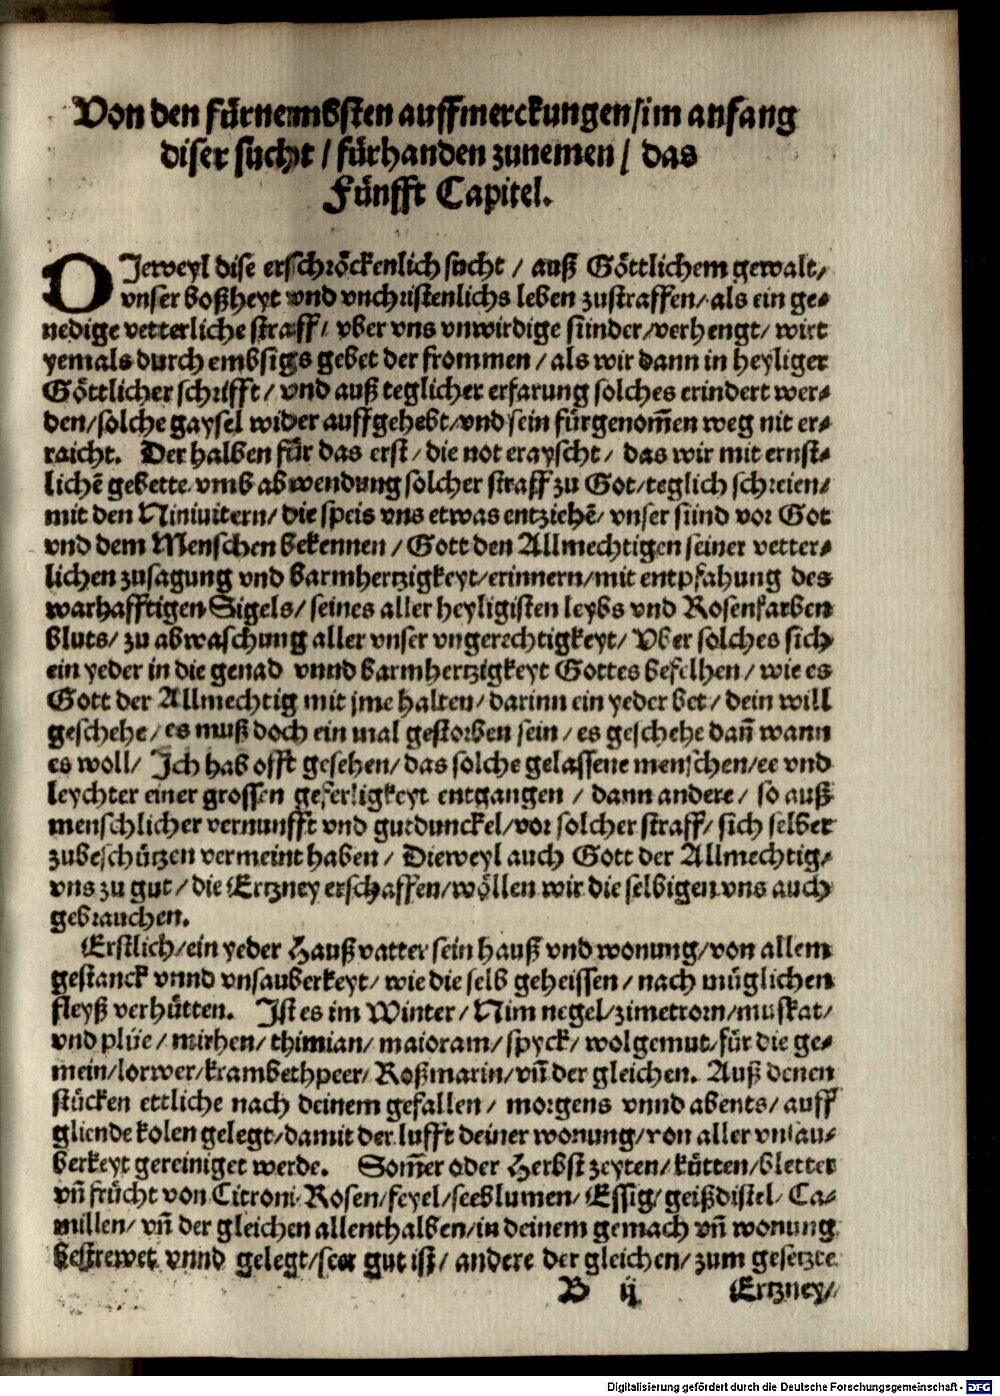 Von den fürnembsten auffmerckungen/ im anfang
diser sucht / fürhanden zunemen / das
Fünfft Capitel.
DJeweyl dise erschröckenlich sucht / auß Göttlichem gewalt/
vnser boßheyt vnd vnchristenlichs leben zustraffen/ als ein ge⸗
nedige vetterliche straff/ vber vns vnwirdige sünder/ verhengt/ wirt
yemals durch embsigs gebet der frommen / als wir dann in heyliger
Göttlicher schrifft / vnd auß teglicher erfarung solches erindert wer⸗
den/ solche gaysel wider auffgehebt/ vnd sein fürgenom̃en weg nit er⸗
raicht. Der halben für das erst / die not erayscht / das wir mit ernst⸗
lichẽ gebette vmb abwendung solcher straff zu Got/ teglich schreien/
mit den Niniuitern/ die speis vns etwas entziehẽ/ vnser sünd vor Got
vnd dem Menschen bekennen / Gott den Allmechtigen seiner vetter⸗
lichen zusagung vnd barmhertzigkeyt/ erinnern/ mit entpfahung des
warhafftigen Sigels/ seines aller heyligisten leybs vnd Rosenfarben
bluts/ zu abwaschung aller vnser vngerechtigkeyt/ Vber solches sich
ein yeder in die genad vnnd barmhertzigkeyt Gottes befelhen / wie es
Gott der Allmechtig mit jme halten/ darinn ein yeder bet / dein will
geschehe / es muß doch ein mal gestorben sein / es geschehe dañ wann
es woll/ Jch hab offt gesehen/ das solche gelassene menschen/ ee vnd
leychter einer grossen geferligkeyt entgangen / dann andere / so auß
menschlicher vernunfft vnd gutdunckel/ vor solcher straff/ sich selber
zubeschützen vermeint haben / Dieweyl auch Gott der Allmechtig/
vns zu gut / die Ertzney erschaffen/ wöllen wir die selbigen vns auch
gebrauchen.
Erstlich/ ein yeder Haußvatter sein hauß vnd wonung/ von allem
gestanck vnnd vnsauberkeyt / wie die selb geheissen / nach müglichen
fleyß verhütten. Jst es im Winter / Nim negel/ zimetrorn/ muskat/
vnd plüe / mirhen/ thimian/ maioram/ spyck/ wolgemut/ für die ge⸗
mein/ lorwer/ krambethpeer/ Roßmarin/ vñ der gleichen. Auß denen
stücken ettliche nach deinem gefallen / morgens vnnd abents/ auff
gliende kolen gelegt/ damit der lufft deiner wonung/ von aller vnsau⸗
berkeyt gereiniget werde. Som̃er oder Herbst zeyten/ kütten/ bletter
vñ frücht von Citroni/ Rosen/ feyel/ seeblumen/ Essig/ geißdistel/ Ca⸗
millen/ vñ der gleichen allenthalben/ in deinem gemach vñ wonung
bestrewet vnnd gelegt/ seer gut ist/ andere der gleichen/ zum gesetzte
B ij Ertzney/
Digitalisierung gefördert durch die Deutsche Forschungsgemeinschaft - DFG